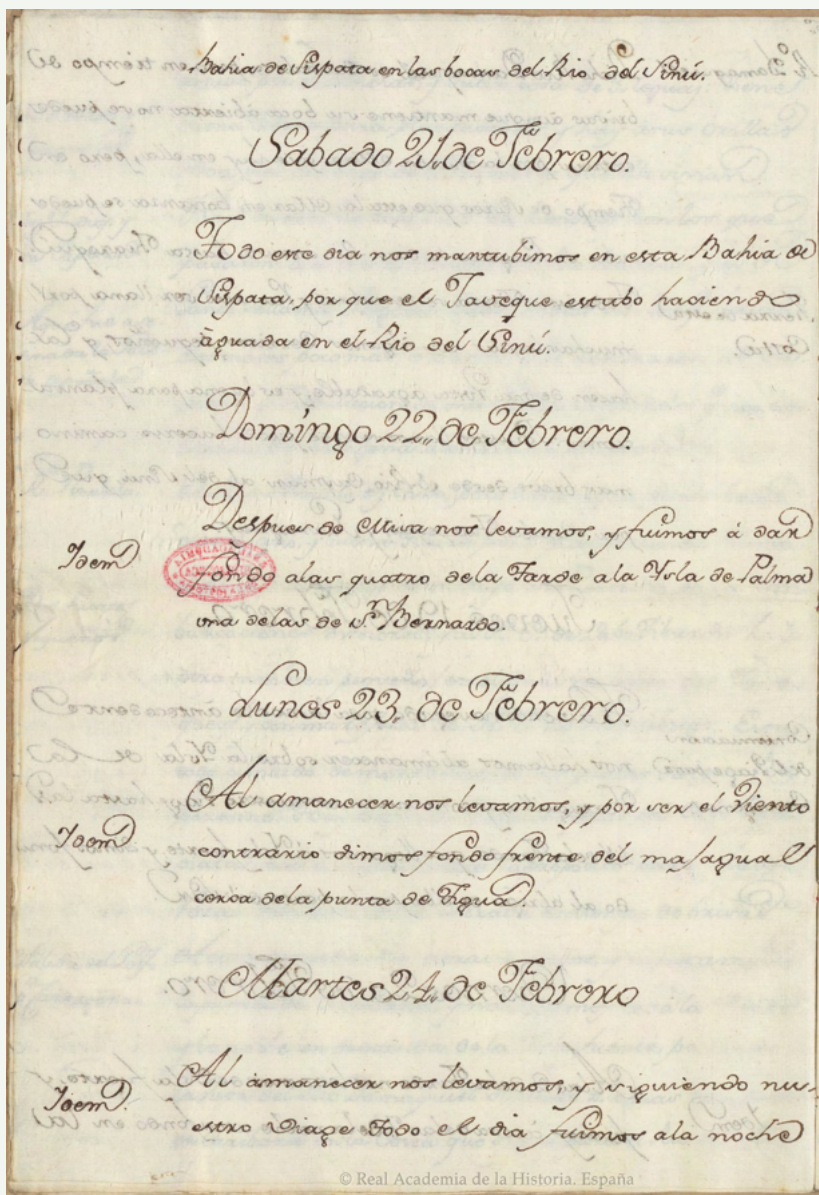 Bahia de Sispata en las bocas del Rio del Sinú.
Sabado 21. de Febrero.
Todo este dia nos mantubimos en esta Bahia de
Sispata, por que el Javeque estubo haciendo
aguada en el Rio del Sinú.
Domingo 22. de Febrero.
Despues de Misa nos levamos, y fuimos á dar
Idem
fondo alas quatro dela Tarde ala Ysla de Palma
una delas de Sn. Bernardo.
Lunes 23. de Febrero.
Al amanecer nos levamos, y por ser el Viento
Idem
contrario dimos fondo frente del masagual
cerca dela punta de Tigua.
Martes 24. de Febrero
Al amanecer nos levamos, y siguiendo nu-
Idem.
estro Viage Todo el dia fuimos ala noche
© Real Academia de la Historia. España